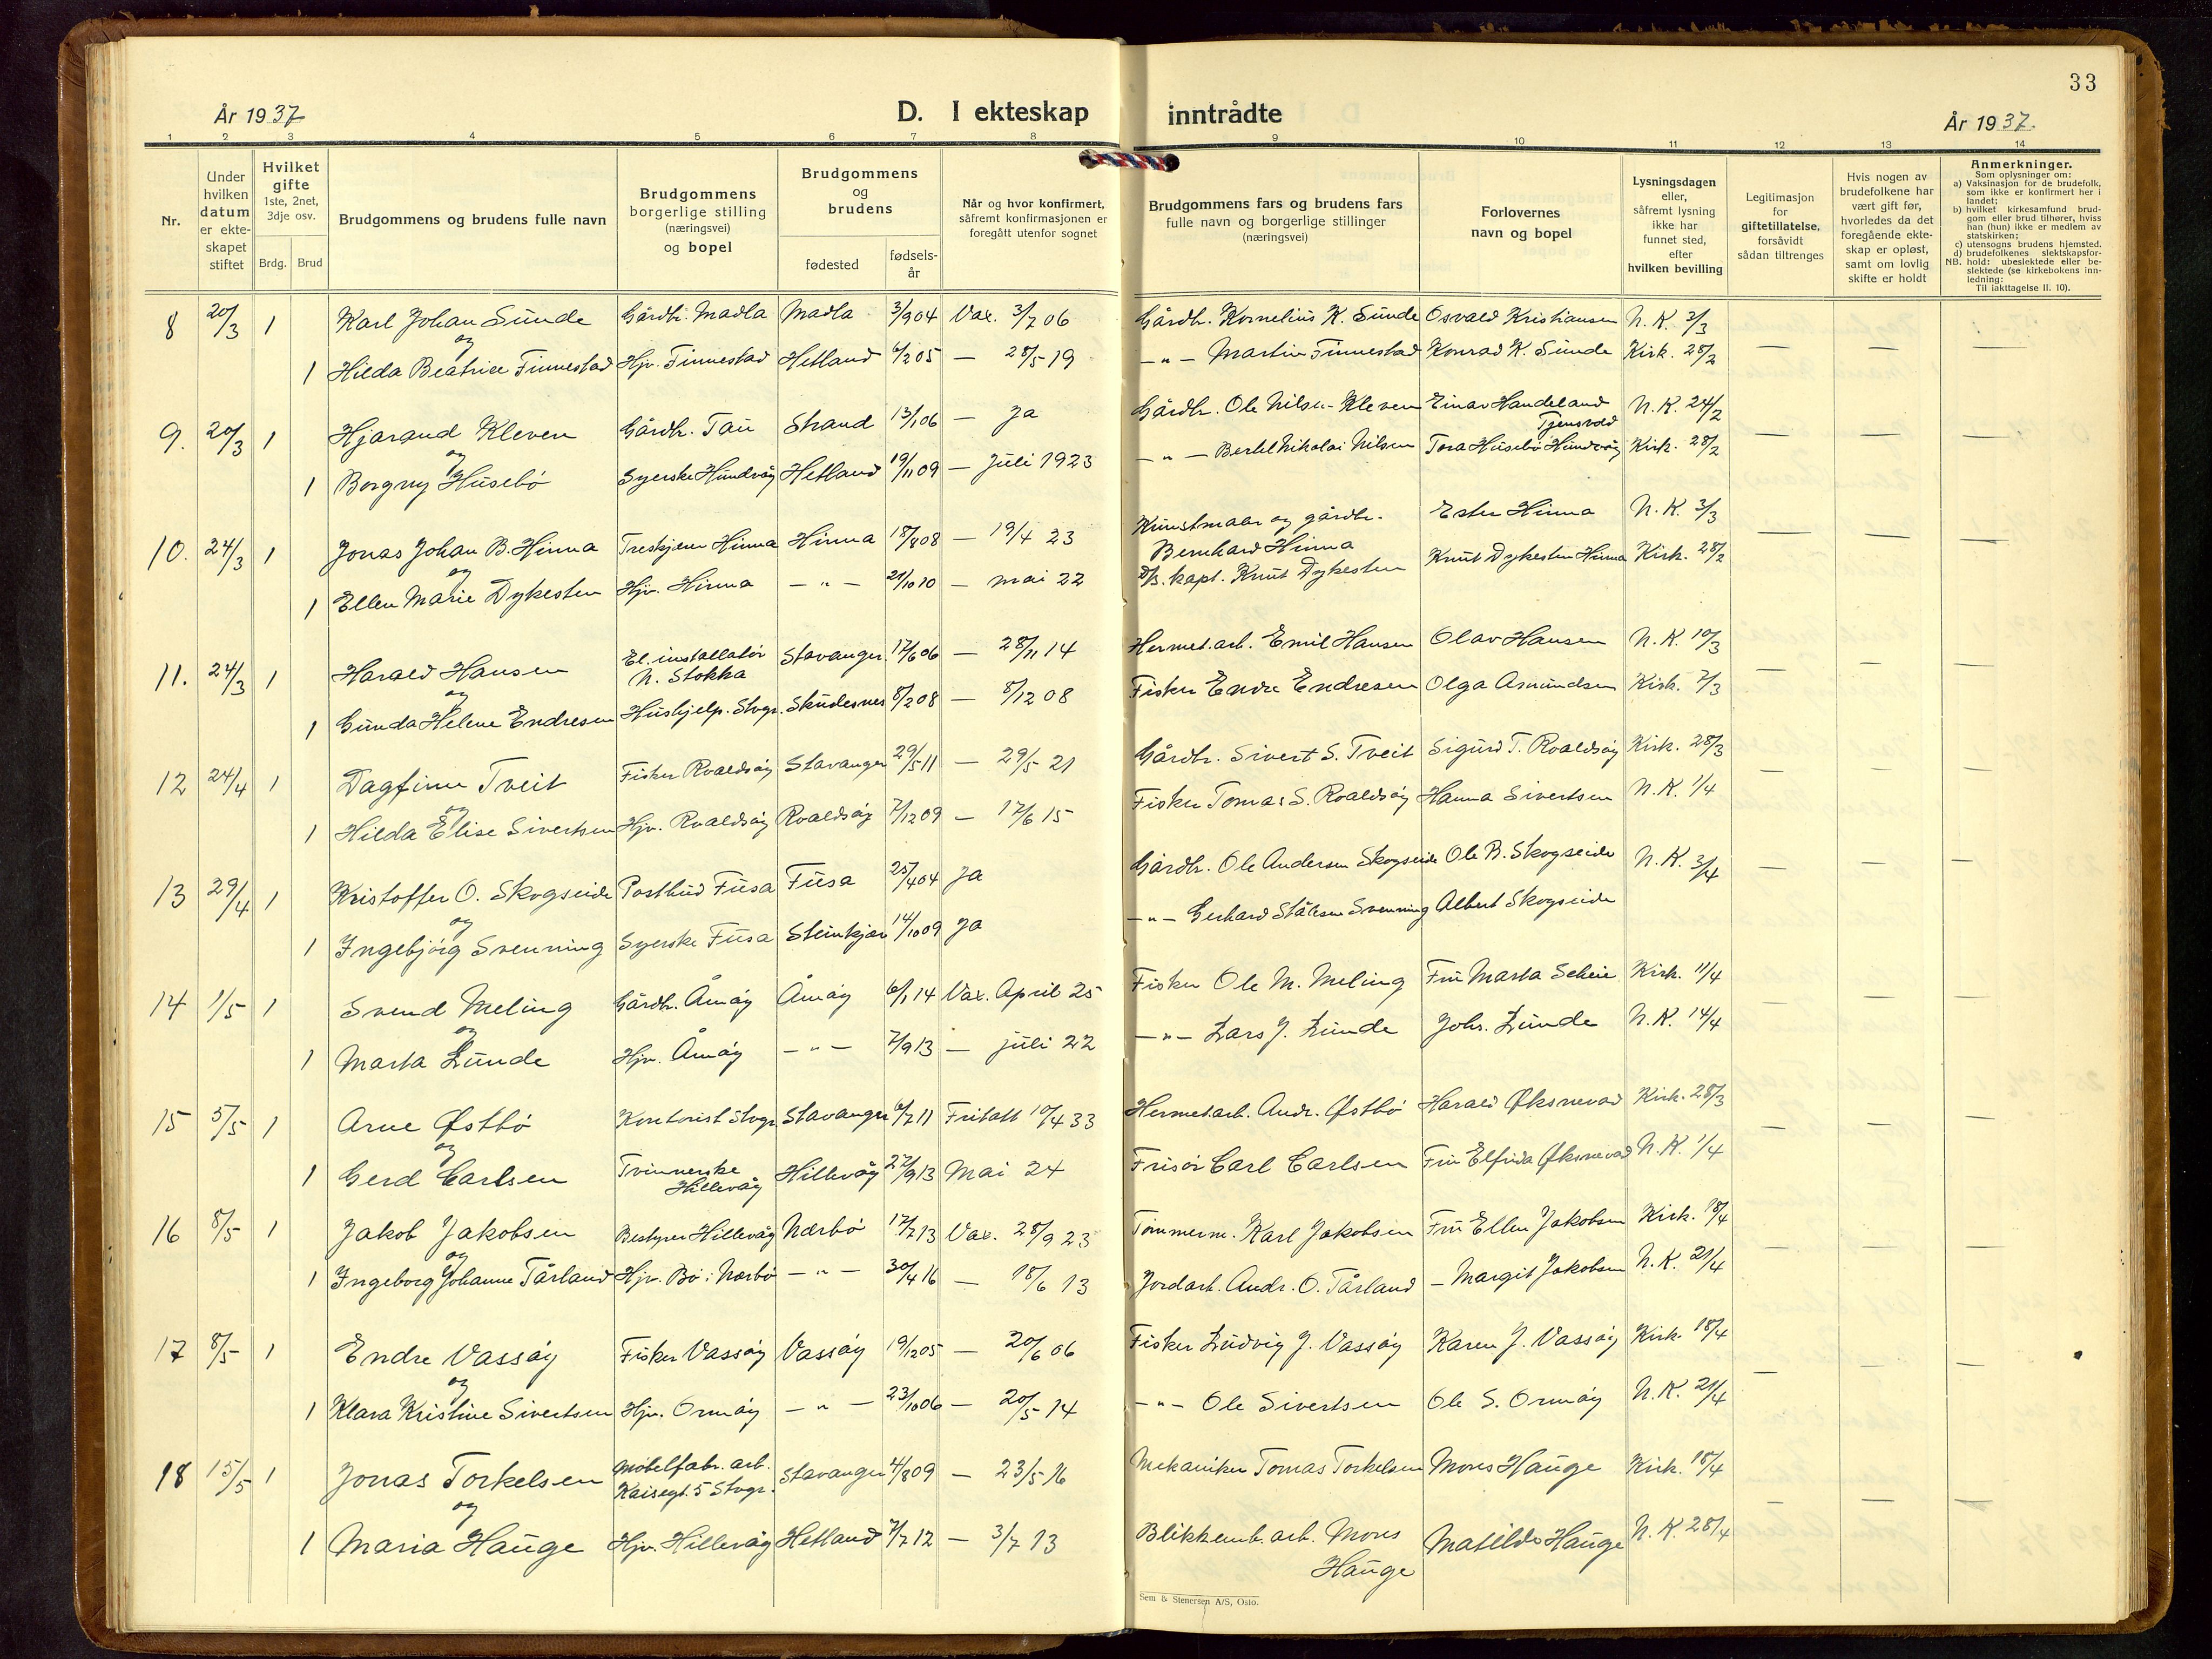 33
År 1937
D. I ekteskap inntrådte
År 1937.
1 2 3 4 5 6 7 8 9 10 11 12 13 14
Nr.
Under hvilken datum er ekte-skapet stiftet
Hvilket gifte 1ste, 2net, 3dje osv.
Brdg. Brud
Brudgommens og brudens fulle navn
Brudgommens borgerlige stilling (næringsvei) og bopel
Brudgommens og brudens
fødested
fødsels-år
Når og hvor konfirmert, såfremt konfirmasjonen er foregått utenfor sognet
Brudgommens fars og brudens fars fulle navn og borgerlige stillinger (næringsvei)
Forlovernes navn og bopel
Lysningsdagen eller, såfremt lysning ikke har funnet sted, efter hvilken bevilling
Legitimasjon for giftetillatelse, forsåvidt sådan tiltrenges
Hvis nogen av brudefolkene har vært gift før, hvorledes da det foregående ekte-skap er opløst, samt om lovlig skifte er holdt
Anmerkninger.
Som oplysninger om:
a) Vaksinasjon for de brudefolk, som ikke er konfirmert her i landet;
b) hvilket kirkesamfund brud-gom eller brud tilhører, hviss han (hun) ikke er medlem av statskirken;
c) utensogns brudens hjemsted.
d) brudefolkenes slektskapsfor-hold: ubeslektede eller be-slektede (se kirkebokens inn-ledning:
NB.
Til iakttagelse II. 10).
8 20/3 1 Karl Johan Sunde Gårdbr. Madla Madla 3/9 04 Vax. 3/7 06 Gårdbr. Kornelius K. Sunde Osvald Kristiansen N. K. 3/3
og
1 Hilda Beatrice Finnestad Hjv. Finnestad Hetland 6/2 05 — 28/5 19 —"— Martin Finnestad Konrad K. Sunde Kirk. 28/2
9. 20/3 1 Hjarand Kleven Gårdbr. Tau Strand 13/1 06 — ja Gårdbr. Ole Nilsen Kleven Einar Handeland Tjensvold N. K. 24/2
og
1 Borgny Husebö Syerske Hundvåg Hetland 19/11 09 — Juli 1923 —"— Bertel Nikolai Nilsen Tora Husebö Hundvåg Kirk. 28/2
10. 24/3 1 Jonas Johan B. Hinna Treskjærer Hinna Hinna 18/8 08 — 19/4 23 Kunstmaler og gårdbr. Bernhard Hinna Ester Hinna N. K. 3/3
og
1 Ellen Marie Dykesten Hjv. Hinna —"— 21/10 10 — mai 22 D/S. kapt. Knut Dykesten Knut Dykesten Hinna Kirk. 28/2
11. 24/3 1 Harald Hansen El. installatör N. Stokka Stavanger. 17/6 06 — 28/11 14 Hermet. arb. Emil Hansen Olav Hansen N. K. 10/3
og
1 Gunda Helene Endresen Hushjelp. Stvgr. Skudesnes 8/2 08 — 8/12 08 Fisker Endre Endresen Olga Asmundsen Kirk. 7/3
12 24/4 1 Dagfinn Tveit Fisker Roaldsöy Stavanger 29/5 11 — 29/5 21 Gårdbr. Sivert S. Tveit Sigurd T. Roaldsöy Kirk. 28/3
og
1 Hilda Elise Sivertsen Hjv. Roaldsöy Roaldsöy 7/12 09 — 17/6 15 Fisker Tomas S. Roaldsöy Hanna Sivertsen N. K. 1/4
13 29/4 1 Kristoffer O. Skogseide Postbud Fusa Fusa 25/4 04 ja Gårdbr. Ole Andersen Skogseide Ole B. Skogseide N. K. 3/4
og
1 Ingebjörg Svenning Syerske Fusa Steinkjær 14/10 09 ja —"— Gerhard Stålesen Svenning Albert Skogseide
14 1/5 1 Svend Meling Gårdbr. Åmöy Åmöy 6/1 14 Vax. April 25 Fisker Ole M. Meling Fru Marta Scheie Kirk. 11/4
og
1 Marta Lunde Hjv. Åmöy —"— 7/9 13 — juli 22 —"— Lars J. Lunde Johs. Lunde N. K. 14/4
15 5/5 1 Arne Østbö Kontorist Stvgr Stavanger 6/7 11 Fritatt 10/4 33 Hermet. arb. Andr. Østbö Harald Øksnevad Kirk. 28/3
og
1 Gerd Carlsen Tvinnerske Hillevåg Hillevåg 27/9 13 Mai 24 Frisör Carl Carlsen Fru Elfrida Øksnevad N. K. 1/4
16 8/5 1 Jakob Jakobsen Bestyrer Hillevåg Nærbö 17/7 13 Vax. 28/9 23 Tömmerm. Karl Jakobsen Fru Ellen Jakobsen Kirk. 18/4
og
1 Ingeborg Johanne Tårland Hjv. Bö i Nærbö —"— 30/4 16 — 18/6 13 Jordarb. Andr. O. Tårland — Margit Jakobsen N. K. 21/4
17 8/5 1 Endre Vassöy Fisker Vassöy Vassöy 19/12 05 — 20/6 06 Fisker Ludvig J. Vassöy Karen J. Vassöy Kirk. 18/4
og
1 Klara Kristine Sivertsen Hjv. Ormöy —"— 23/10 06 — 20/5 14 —"— Ole Sivertsen Ole S. Ormöy N. K. 21/4
18 15/5 1 Jonas Torkelsen Möbelfabr. arb. Kaisegt. 5 Stvgr. Stavanger 4/8 09 — 23/5 16 Mekaniker Tomas Torkelsen Mons Hauge Kirk. 18/4
og
1 Maria Hauge Hjv. Hillevåg Hetland 7/7 12 — 3/7 13 Blikkemb. arb. Mons Hauge Matilde Hauge N. K. 28/4
Sem & Stenersen A/S, Oslo.